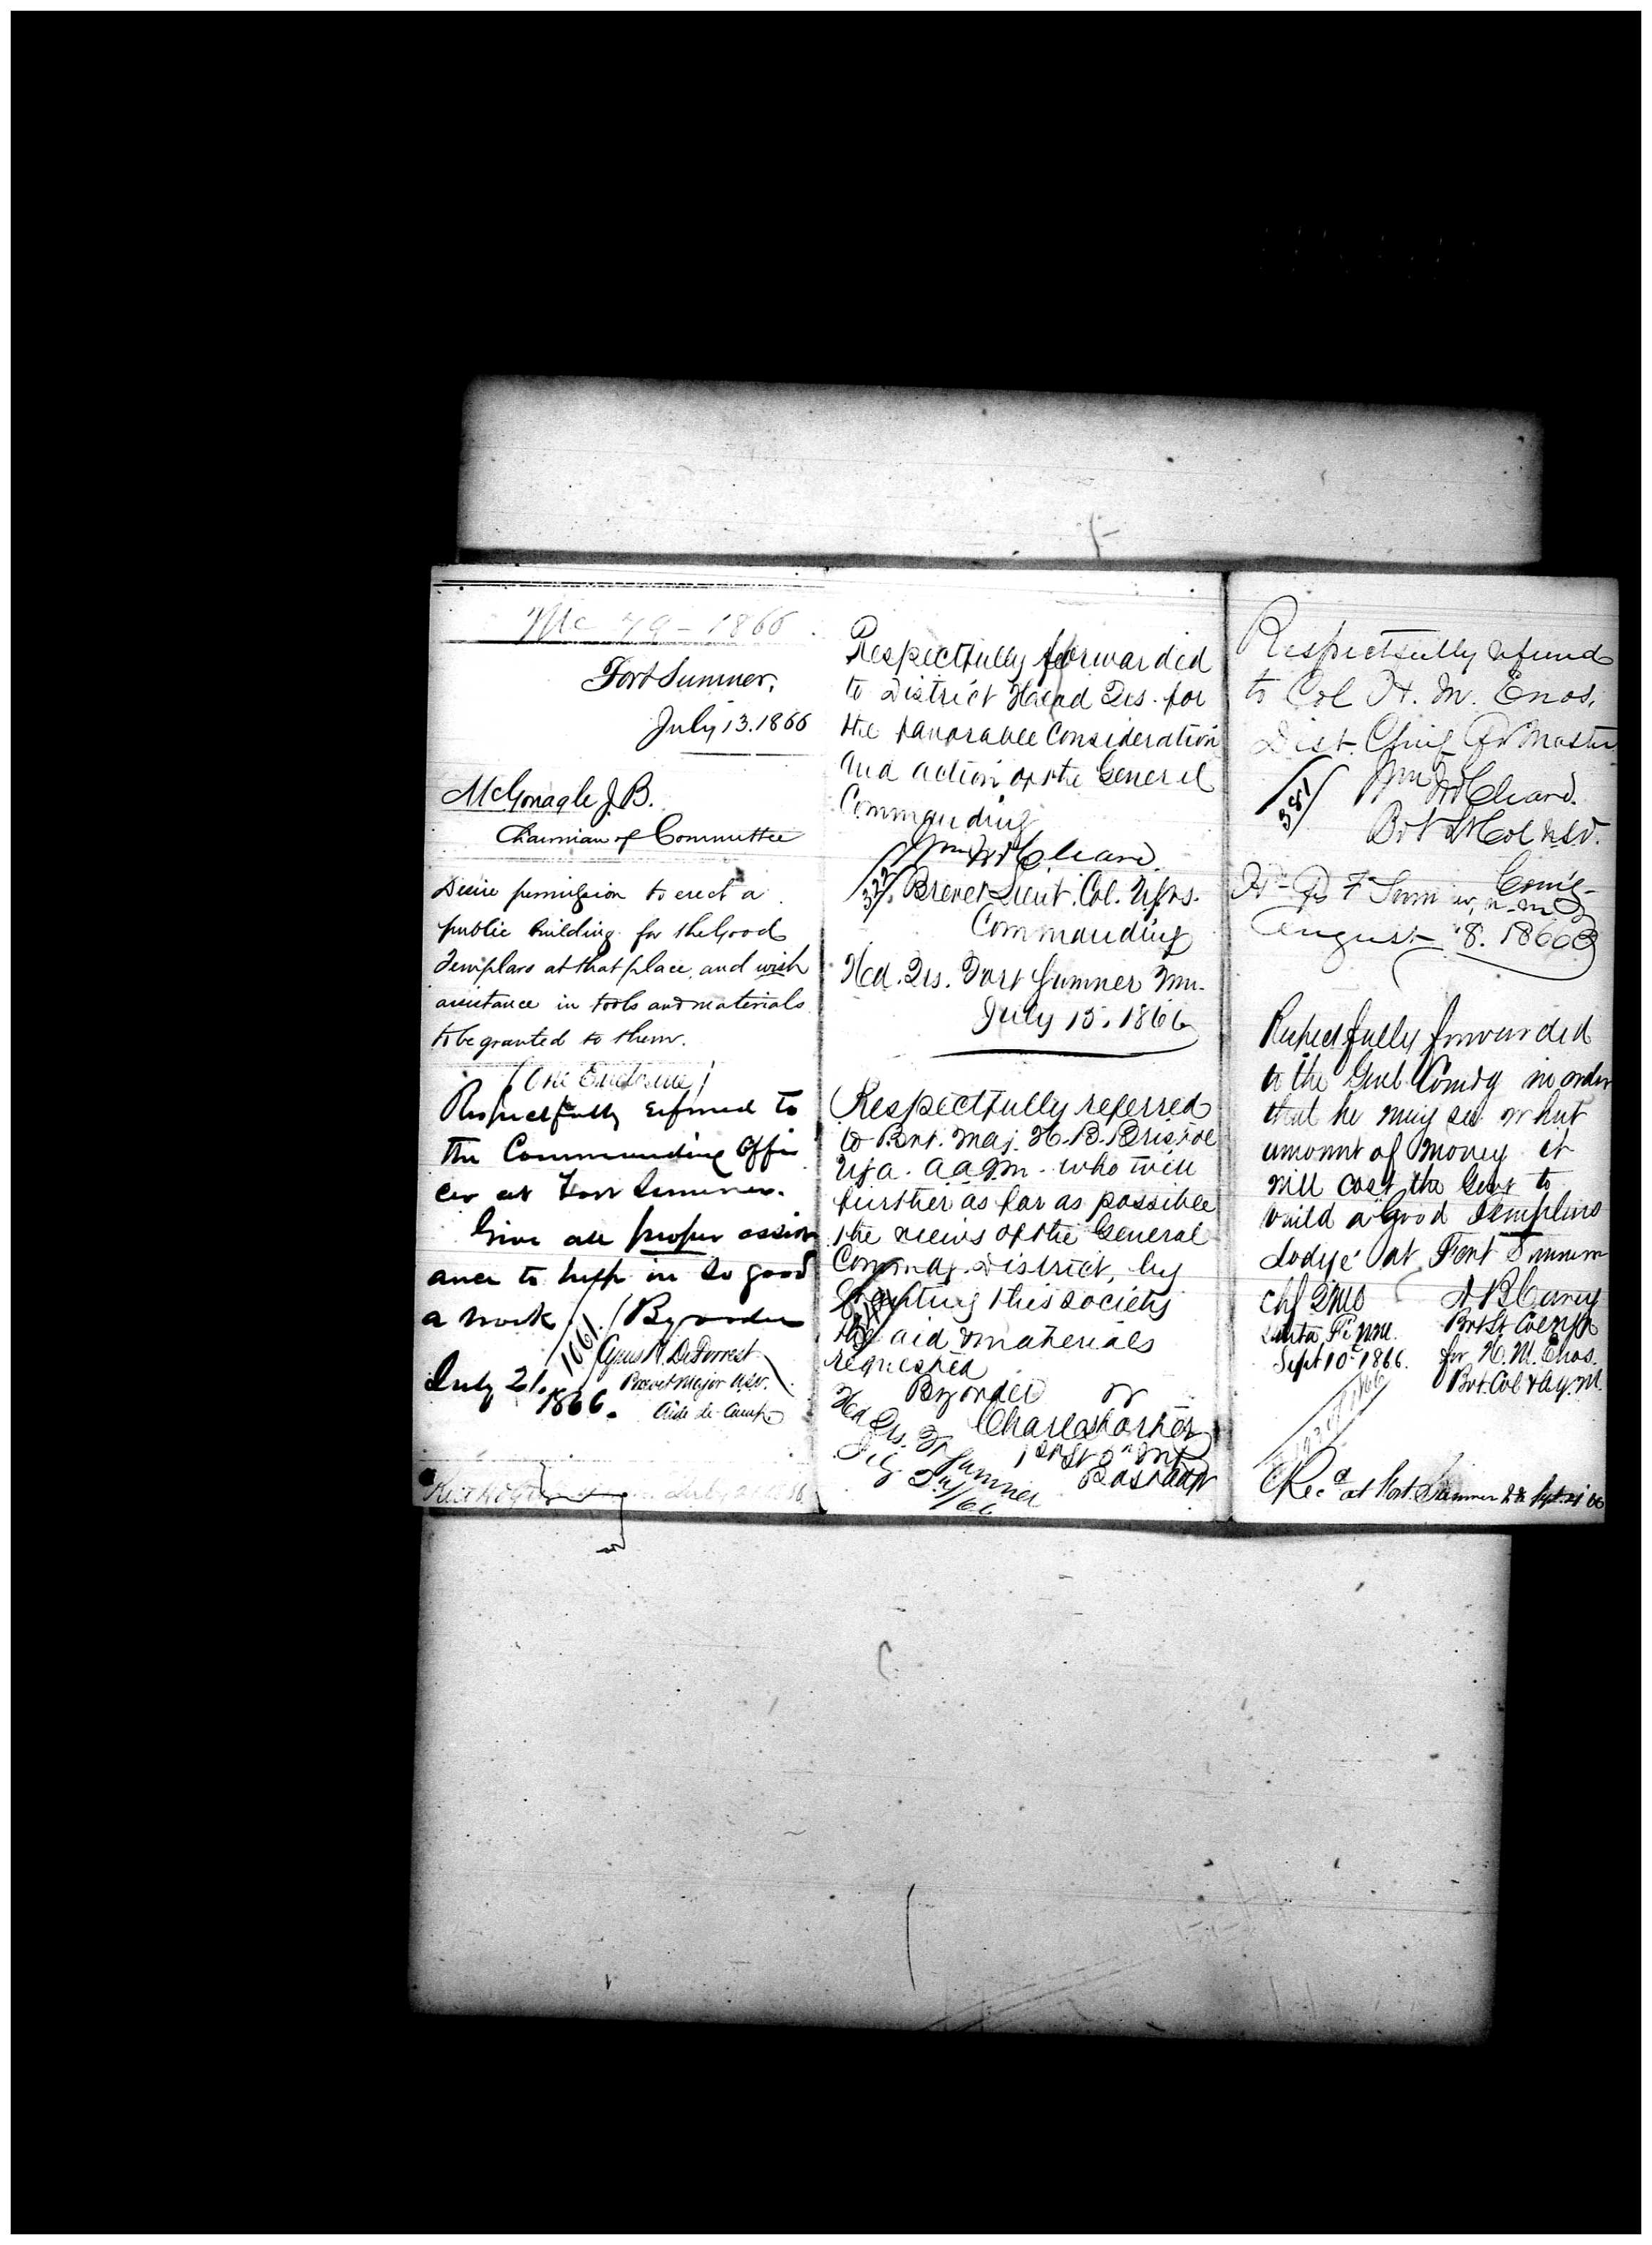 Mc 79 - 1866.
Fort Sumner,
July 13. 1866
McGonagle J. B.
Chairman of Committee
Desire permission to erect a
public building for the Good
Templars at that place, and wish
assistance in tools and materials
to be granted to them.
(One Enclosure)
Respectfully referred to
the Commanding Offi
cer at Fort Sumner.
Give all proper assist
ance to help in so good
a work. (By order
1061
Cyrus H. DeForrest
Brevet Major USV.
Aide de Camp
July 21,
1866.
July 21 1866
Respectfully forwarded
to District Head Qrs. for
the favorable Consideration
and action of the General
Commanding
322
Brevet Lieut. Col. Vols.
Commanding
Hd. Qrs. Fort Sumner
July 15, 1866
Respectfully referred
to Bvt. Maj. H. B. Bristol
who will
further as far as possible
the views of the General
Commdg. District, by
granting this society
the aid & materials
requested
By order of
Charles Porter
1st Lt 5th Inf
Post Adjt
Hd Qrs. Ft Sumner
Respectfully referred
to Col H. M. Enos,
Dist. Chief Qr Master
381
Bvt Lt Col USV.
Comg
Hd Qrs Ft Sumner, N.M.
August 8. 1866
Respectfully forwarded
to the Genl Comdg in order
that he may see what
amount of money it
will cost the Govt to
build a Good Templars
Lodge at Fort Sumner
Chf QMO
Santa Fe NM.
Sept 10th 1866.
A B Carey
Bvt Lt Col USA
for H. M. Enos.
Bvt. Col & Q.M.
Recd at Fort Sumner Sept 21 66